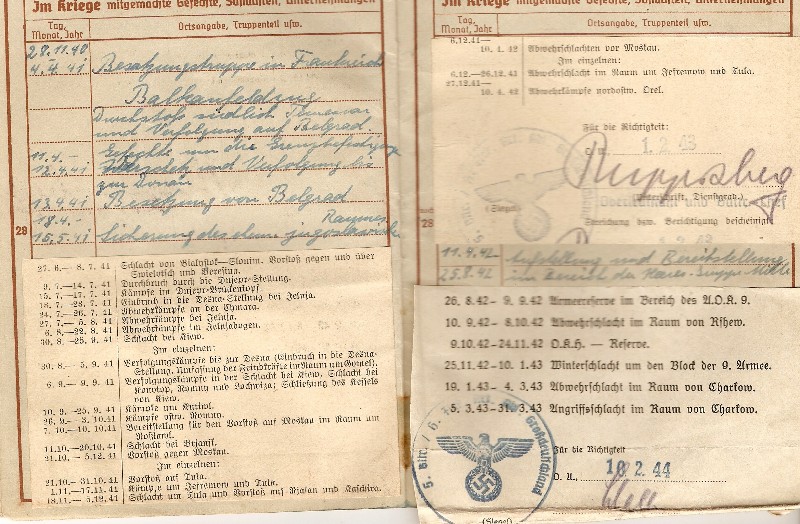 Im Kriege mitgemachte Gefechte, Schlachten, Unternehmungen
Tag, Monat, Jahr
Ortsangabe, Truppenteil usw.
28.11.40
4.4.41
Besatzungstruppe in Frankreich
Balkanfeldzug
Durchstoß südlich
und Verfolgung auf Belgrad
11.4.-
12.4.41
Gefechte um die Grenzbefestigung
und Verfolgung bis
zur Donau
13.4.41
Besetzung von Belgrad
18.4.-
15.5.41
Sicherung des ehem. jugoslawischen
28
27. 6.— 8. 7. 41 Schlacht von Bialystok—Slonim. Vorstoß gegen und über
Swislotsch und Beresina.
9. 7.—14. 7. 41 Durchbruch durch die Dnjepr-Stellung.
15. 7.—17. 7. 41 Kämpfe im Dnjepr-Brückenkopf.
18. 7.—23. 7. 41 Einbruch in die Desna-Stellung bei Jelnja.
24. 7.—26. 7. 41 Abwehrkämpfe an der Chmara.
27. 7.— 5. 8. 41 Abwehrkämpfe bei Jelnja.
6. 8.—22. 8. 41 Abwehrkämpfe im Jelnjabogen.
30. 8.—25. 9. 41 Schlacht bei Kiew.
Im einzelnen:
30. 8.— 5. 9. 41 Verfolgungskämpfe bis zur Desna (Einbruch in die Desna-
Stellung. Umfassung der Feindkräfte im Raum um Gomel).
6. 9.— 9. 9. 41 Verfolgungskämpfe in der Schlacht bei Kiew. Schlacht bei
Konotop, Romny und Lochwiza; Schließung des Kessels
von Kiew.
10. 9.—25. 9. 41 Kämpfe um Putiwl.
26. 9.— 3.10. 41 Kämpfe ostw. Romny.
7.10.—10.10. 41 Bereitstellung für den Vorstoß auf Moskau im Raum um
Roslawl.
11.10.—20.10. 41 Schlacht bei Brjansk.
21.10.— 5.12. 41 Vorstoß gegen Moskau.
Im einzelnen:
21.10.—31.10. 41 Vorstoß auf Tula.
1.11.—17.11. 41 Kämpfe um Jefremow und Tula.
18.11.— 5.12. 41 Schlacht um Tula und Vorstoß auf Rjasan und Kaschira.
Im Kriege mitgemachte Gefechte, Schlachten, Unternehmungen
Tag, Monat, Jahr
Ortsangabe, Truppenteil usw.
6.12. 41—
10. 4. 42 Abwehrschlachten vor Moskau.
Im einzelnen:
6.12.—26.12. 41 Abwehrschlacht im Raum um Jefremow und Tula.
27.12. 41—
10. 4. 42 Abwehrkämpfe nordostw. Orel.
Für die Richtigkeit:
O. U., 1. 2. 43
Ruppsberg
(Unterschrift, Dienstgrad.)
Oberleutnant und Battr.-Chef
(Siegel)
Streichung bzw. Berichtigung bescheinigt
11.4.42-
25.8.42
Aufstellung und Bereitstellung
im Bereich der Heeres-Gruppe Mitte
28
26. 8.42 — 9. 9.42 Armeereserve im Bereich des A.O.K. 9.
10. 9.42 — 8.10.42 Abwehrschlacht im Raum von Rshew.
9.10.42—24.11.42 O.K.H. — Reserve.
25.11.42—10. 1.43 Winterschlacht um den Block der 9. Armee.
19. 1.43 — 4. 3.43 Abwehrschlacht im Raum von Charkow.
5. 3.43—31. 3.43 Angriffsschlacht im Raum von Charkow.
Großdeutschland
Für die Richtigkeit
O. U., 10. 2. 44
(Siegel)